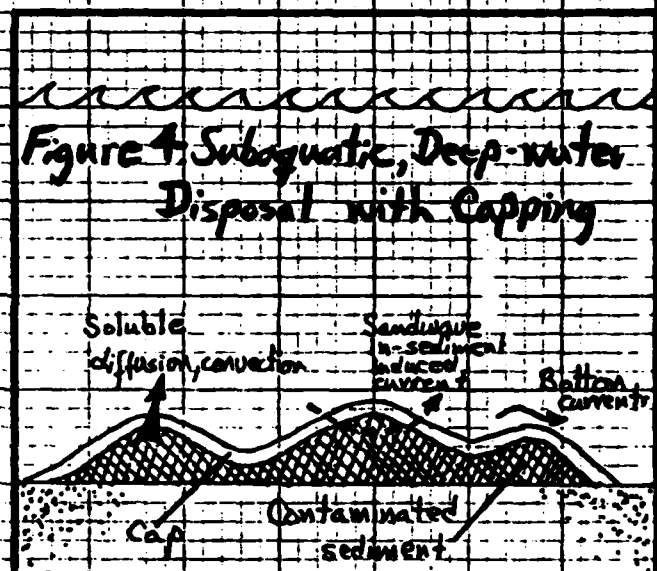 Figure 4. Subaquatic, Deep-water
Disposal with Capping
Soluble
diffusion, convection
Sandwave
n-sediment
induced
current
Bottom
currents
Cap
Contaminated
sediment